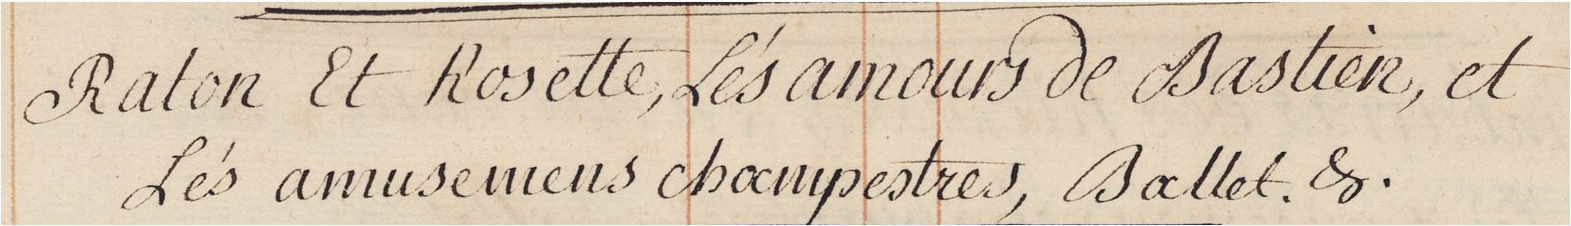 Raton Et Rosette, Lés amours de Bastien, et
Lés amusemens champestres, Ballet. &.